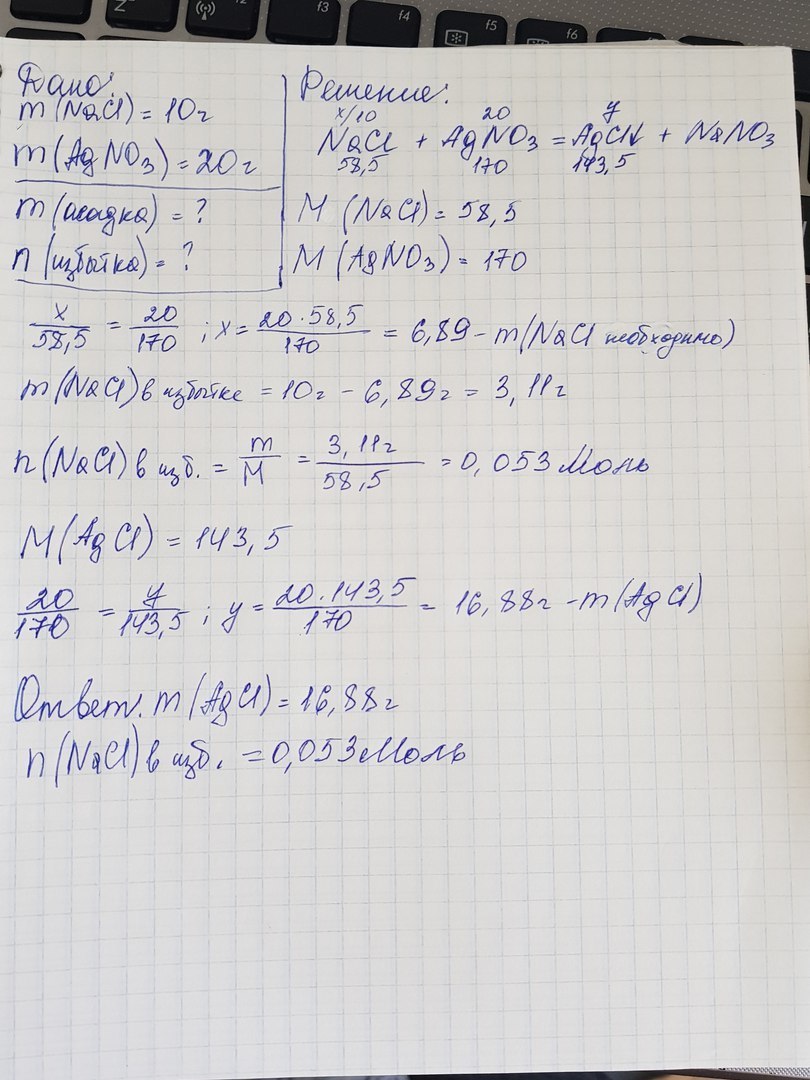 Z f3 f4 f5 f6
Дано:
m(NaCl) = 10г
m(AgNO₃) = 20г
m(осадка) = ?
n(избытка) = ?
Решение:
x/10 20 y
NaCl + AgNO₃ = AgCl↓ + NaNO₃
58,5 170 143,5
M(NaCl) = 58,5
M(AgNO₃) = 170
x/58,5 = 20/170 ; x = 20·58,5/170 = 6,89 - m(NaCl необходимо)
m(NaCl) в избытке = 10г - 6,89г = 3,11г
n(NaCl) в изб. = m/M = 3,11г/58,5 = 0,053 Моль
M(AgCl) = 143,5
20/170 = y/143,5 ; y = 20·143,5/170 = 16,88г - m(AgCl)
Ответ: m(AgCl) = 16,88г
n(NaCl) в изб. = 0,053 Моль